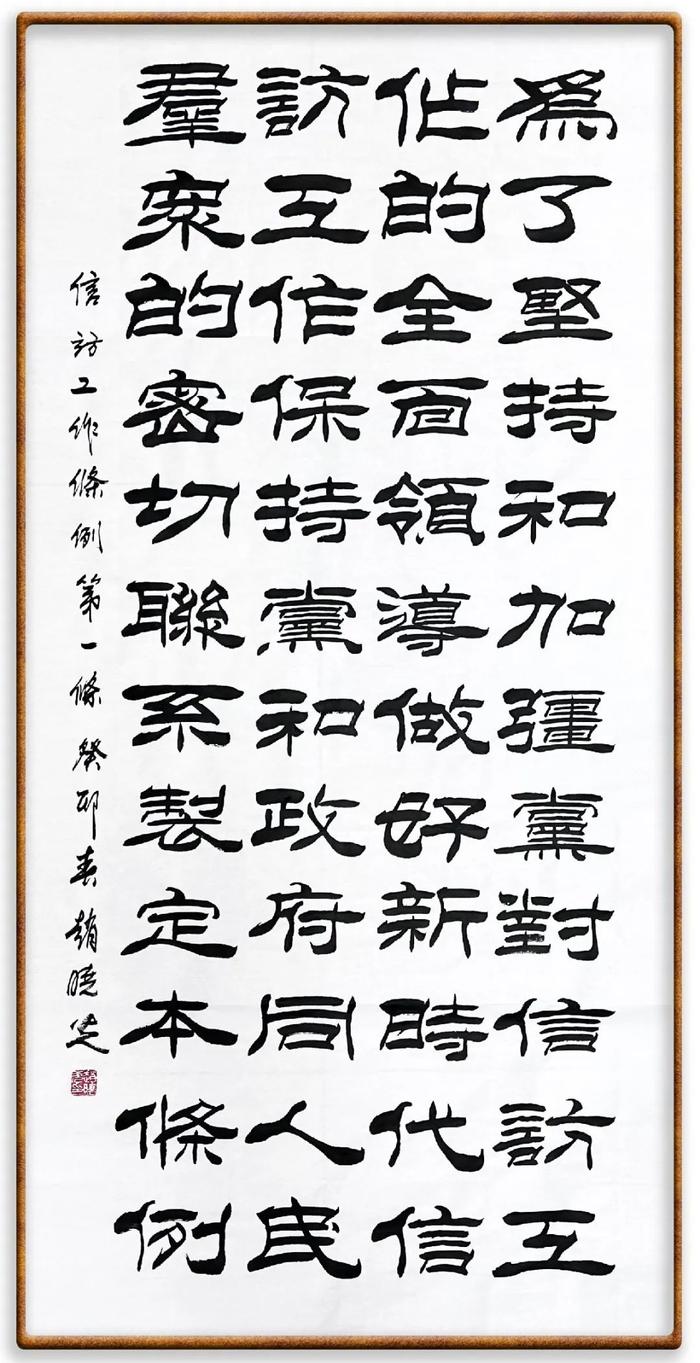 為了堅持和加彊黨對信訪工
作的全面領導做好新時代信
訪工作保持黨和政府同人民
羣衆的密切聯系製定本條例
信訪工作條例第一條癸卯春趙曉